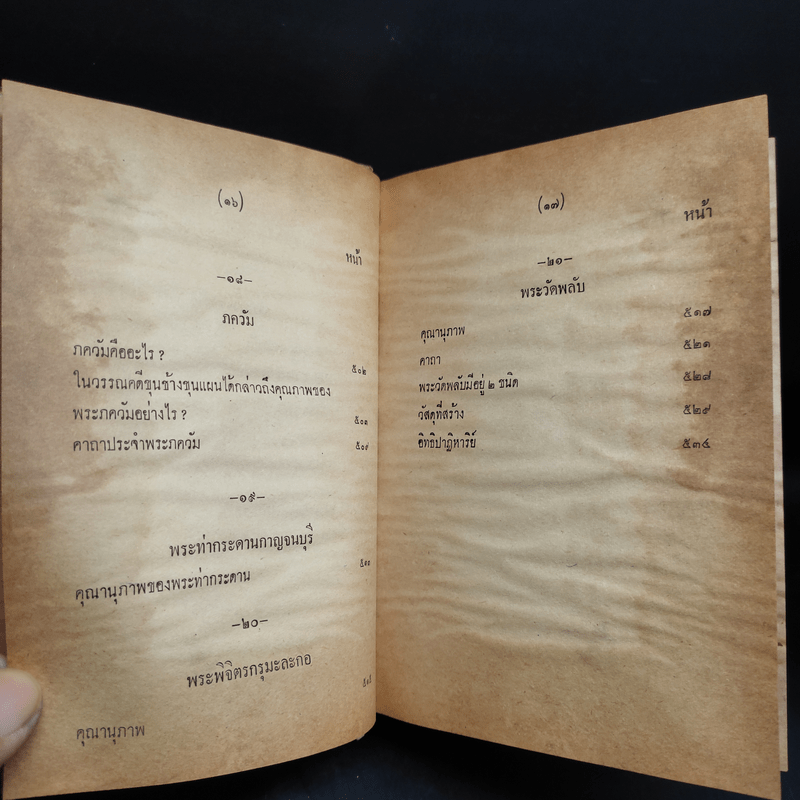 (๑๖)
หน้า
—๑๘—
ภควัม
ภควัมคืออะไร ? ๕๐๒
ในวรรณคดีขุนช้างขุนแผนได้กล่าวถึงคุณภาพของ
พระภควัมอย่างไร ? ๕๐๓
คาถาประจำพระภควัม ๕๐๙
—๑๙—
พระท่ากระดานกาญจนบุรี
คุณานุภาพของพระท่ากระดาน
—๒๐—
พระพิจิตรกรุมะละกอ
คุณานุภาพ
(๑๗)
หน้า
—๒๑—
พระวัดพลับ
คุณานุภาพ ๕๑๗
คาถา ๕๒๑
พระวัดพลับมีอยู่ ๒ ชนิด ๕๒๘
วัสดุที่สร้าง ๕๒๙
อิทธิปาฏิหาริย์ ๕๓๔